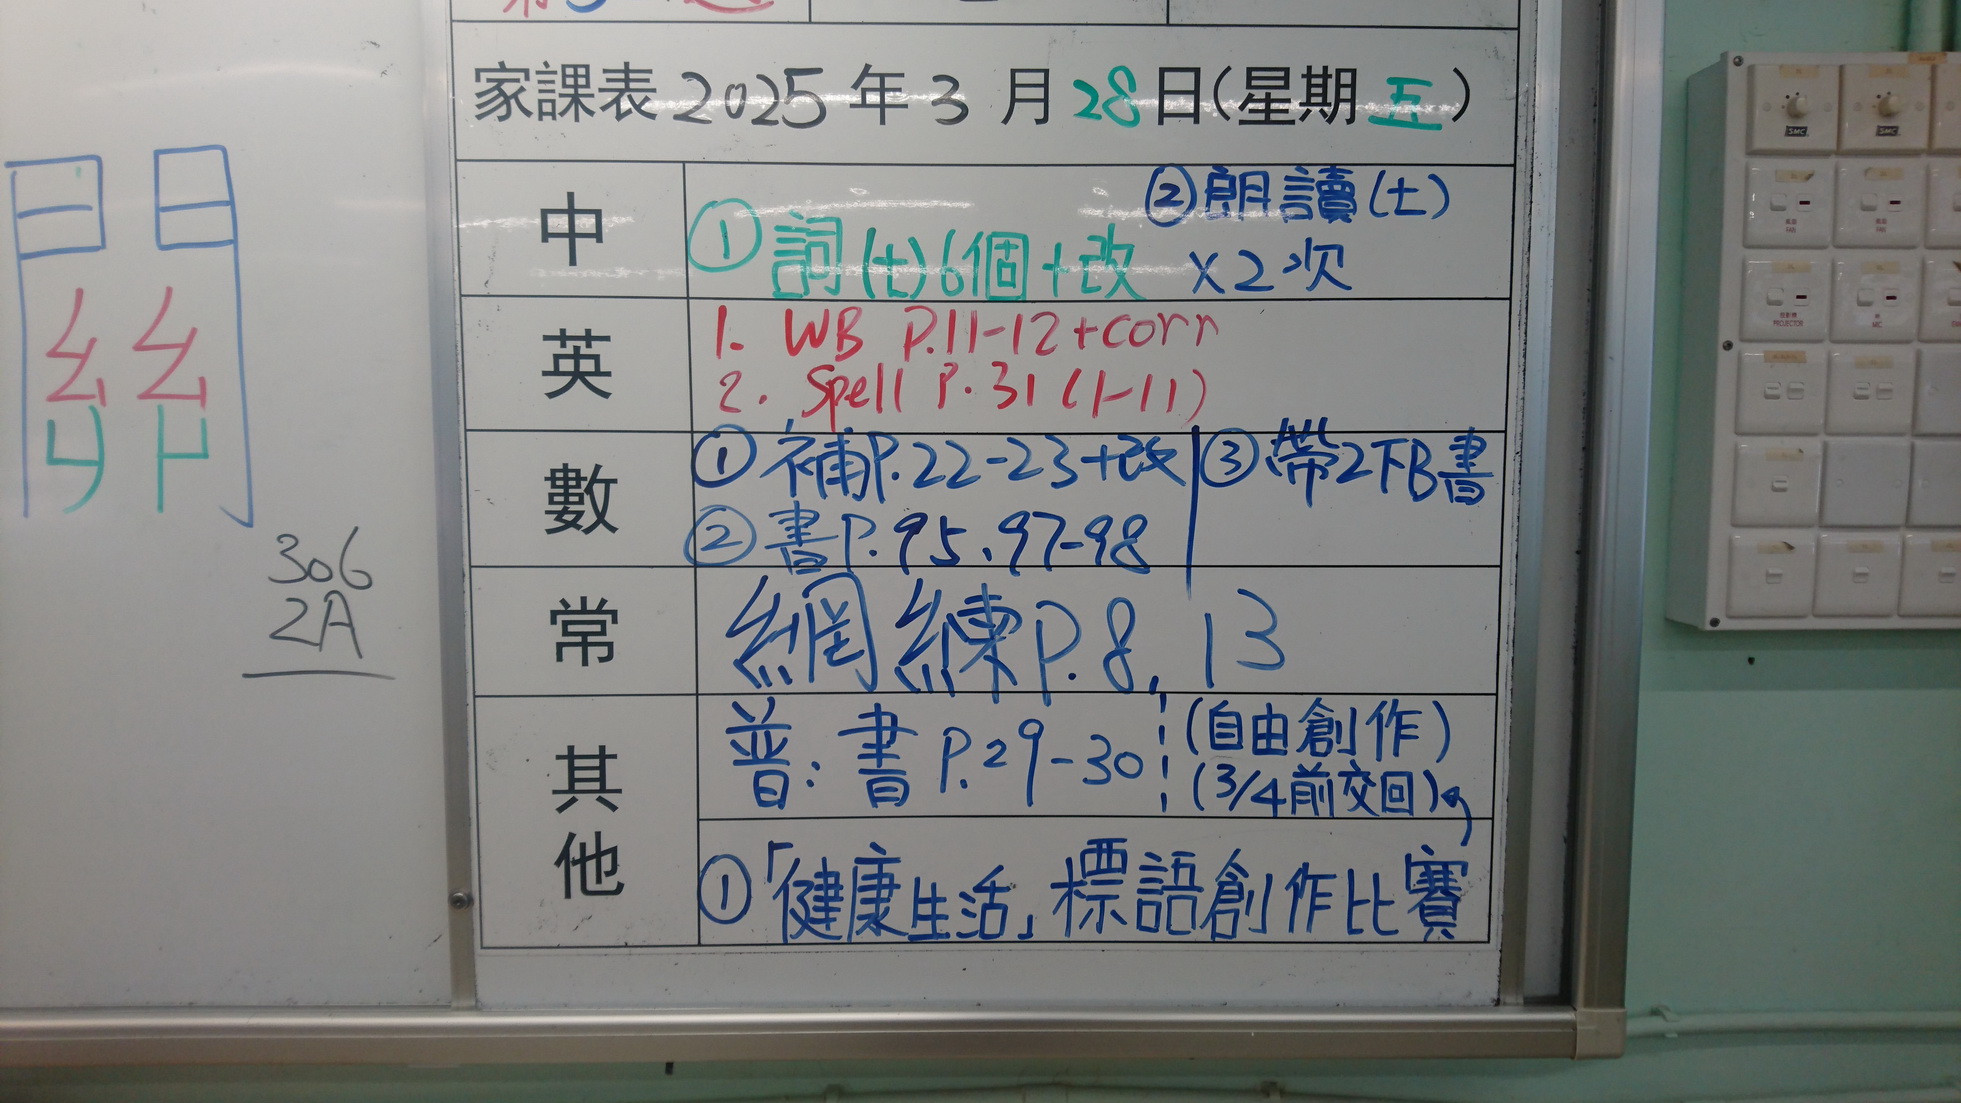 家課表 2025 年 3 月 28 日(星期五)
中
②朗讀(七)
①詞(七)6個+改 x2次
英
1. WB P.11-12+corr
2. Spell P.31 (1-11)
數
①補P.22-23+改
③帶2下B書
②書P.95、97-98
常
網練P.8, 13
其他
普:書P.29-30
(自由創作)
(3/4前交回)
①「健康生活」標語創作比賽
306
2A
PROJECTOR